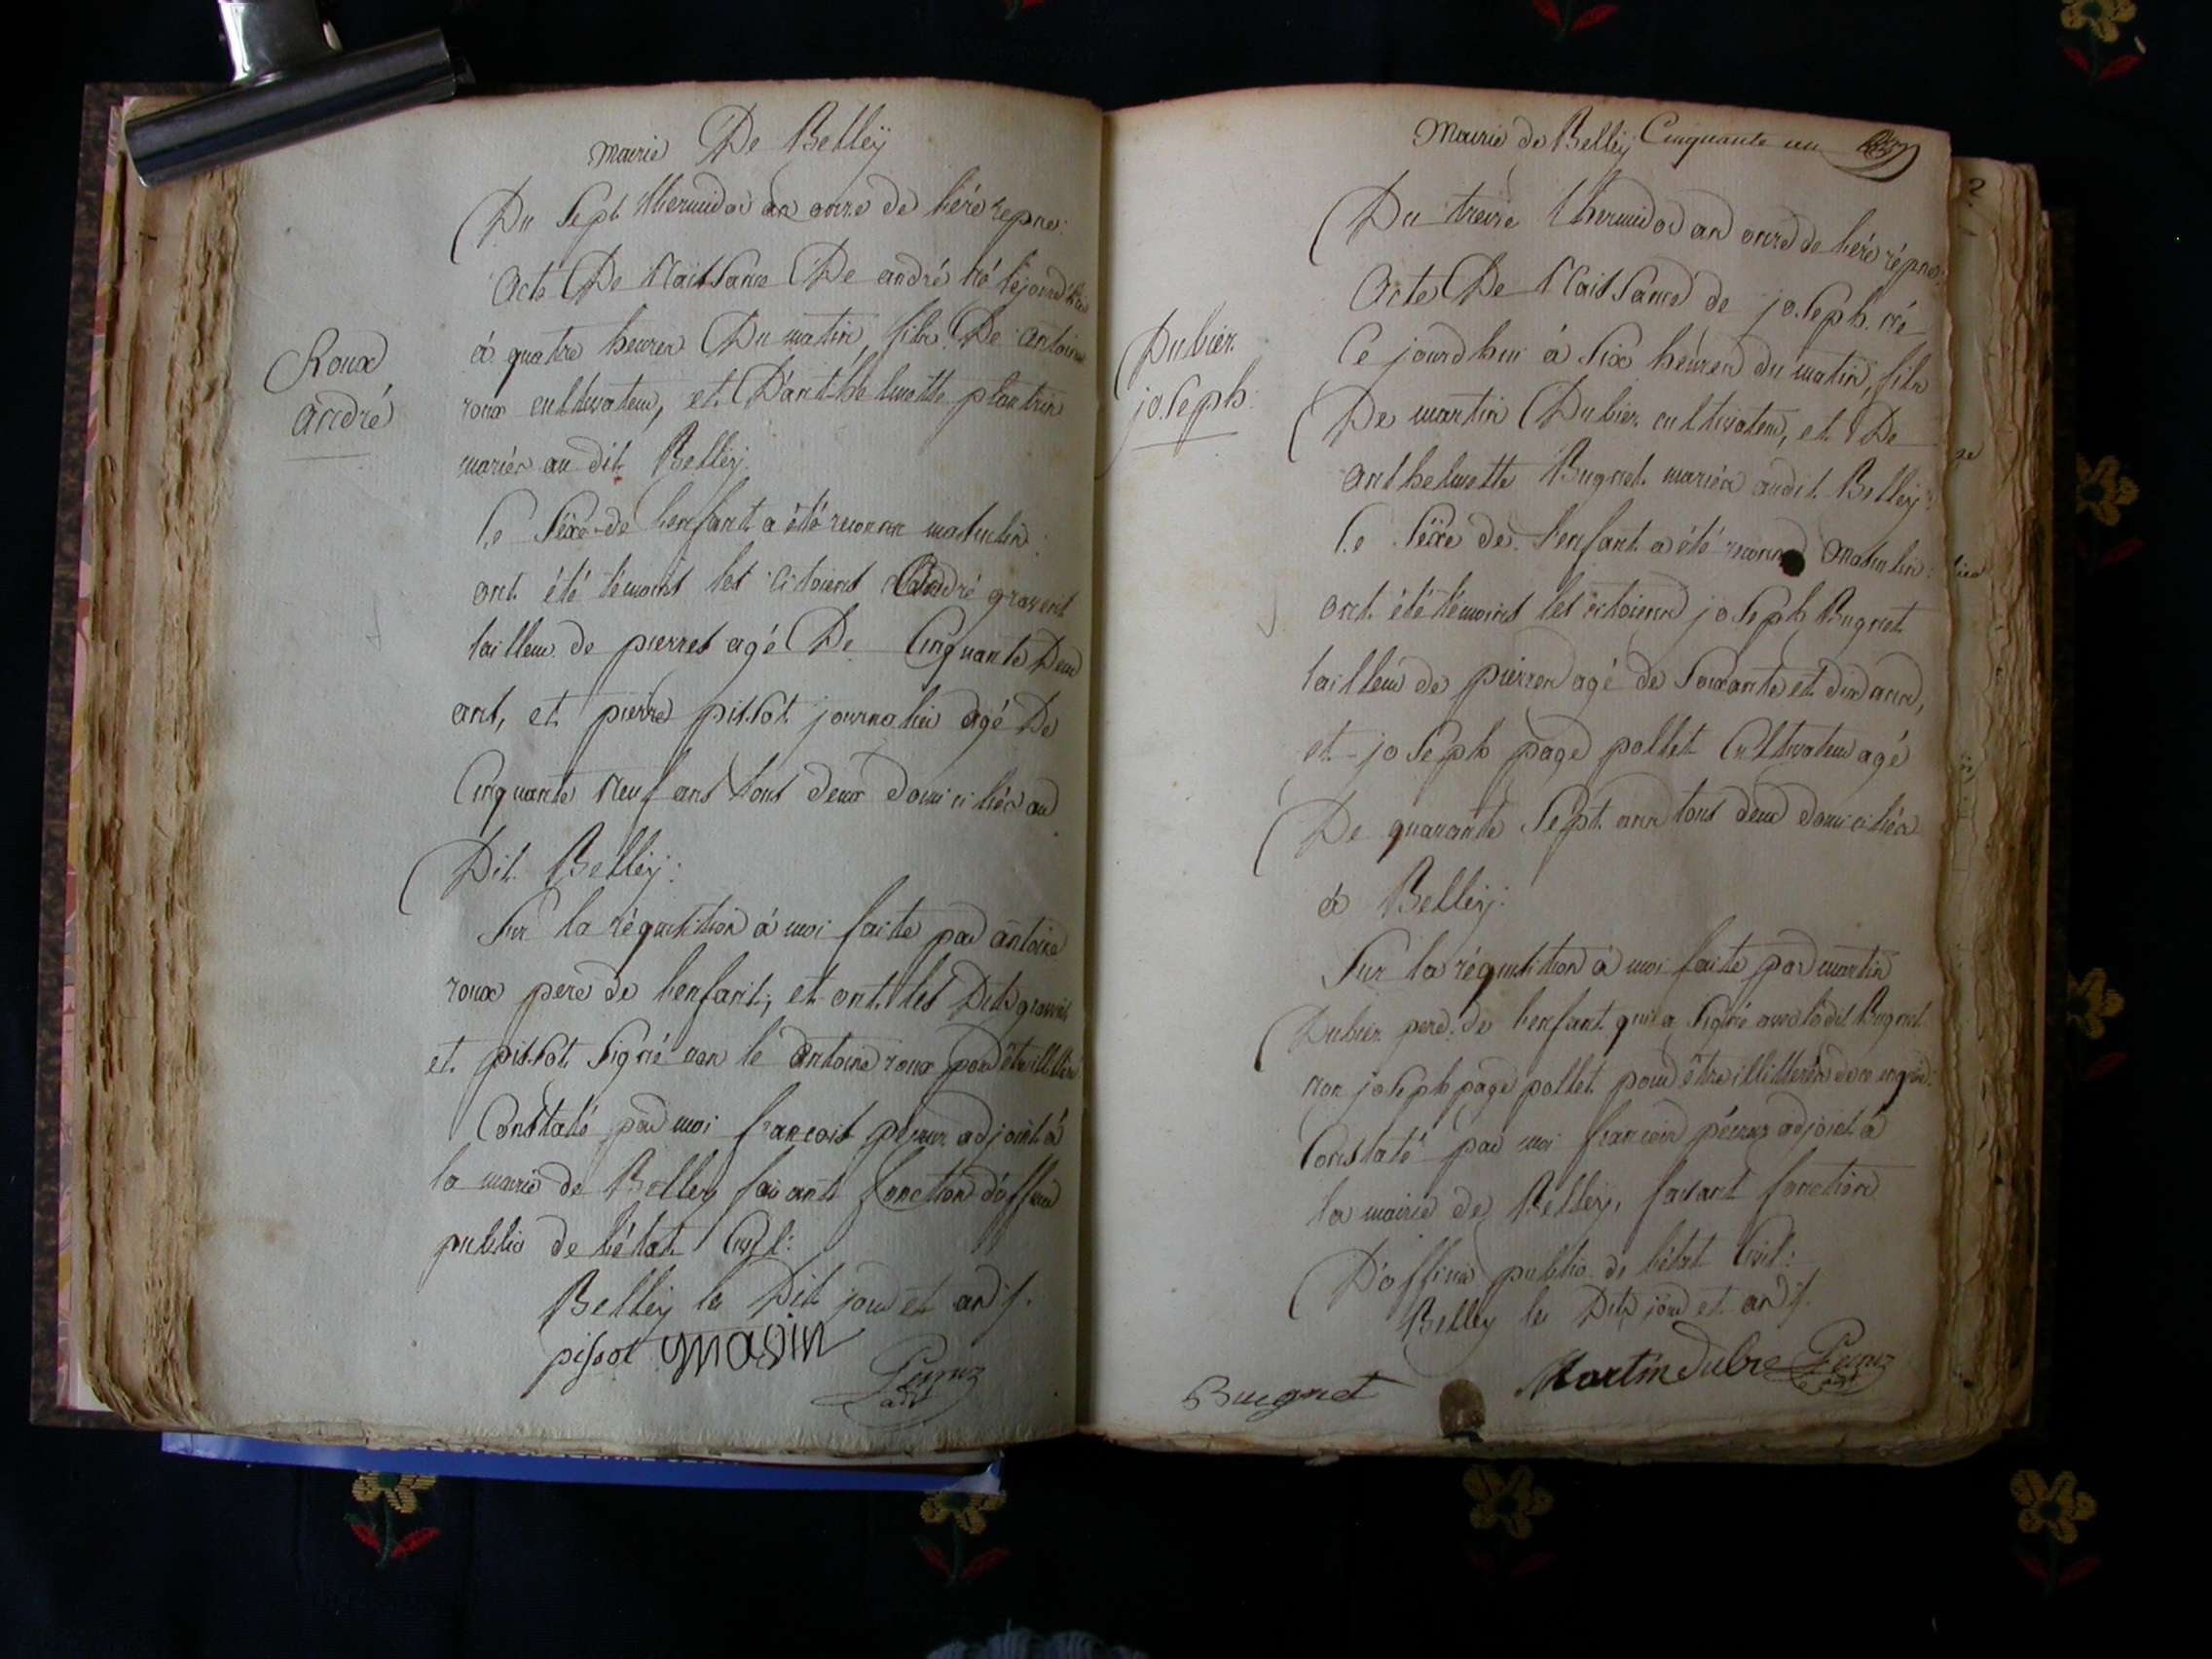 Mairie De Belleÿ
Du Sept thermidor an onze de l'ére repne:
Acte De Naissance De andré né Cejourd'hui
Roux
andré
à quatre heures Du matin, fils De antoine
roux cultivateur, et D'anthelmette plantin
mariés au dit Belleÿ.
Le Séxe de l'enfant a été reconnu masculin:
ont été témoins les citoiens André
tailleur de pierres agé De Cinquante Deux
ans, et pierre pissot journalier agé De
Cinquante Neuf ans tous deux domiciliés au
Dit Belleÿ:
Sur la réquisition à moi faite par antoine
roux pere de l'enfant, et ont les Dits
et pissot Signé non le antoine roux pour être illitéré
Constaté par moi francois adjoint à
la mairie de Belley faisant fonction d'officier
public de l'état Civil:
Belleÿ les Dits jour et an ./.
pissot
adj
Mairie de Belleÿ Cinquante un
Du treize thermidor an onze de l'ére répne:
Acte De Naissance de joseph né
Dubier
joseph
Ce jourd'hui à Six heures du matin, fils
De martin Dubier cultivateur, et De
anthelmette Bugnet mariés audit Belleÿ:
Le Séxe de l'enfant a été reconnu masculin:
ont été témoins les citoiens joseph Bugnet
tailleur de pierres agé de Soixante et dix ans,
et joseph page pollet Cultivateur agé
De quarante Sept ans tous deux domiciliés
à Belleÿ:
Sur la réquisition à moi faite par martin
Dubier pere de l'enfant qui a Signé avec le dit Bugnet
non joseph page pollet pour être illitéré de ce enquis:
Constaté par moi francois adjoint à
la mairie de Belleÿ, faisant fonction
D'officier public de l'état Civil:
Belley les Dits jour et an ./.
Bugnet Martin dubie